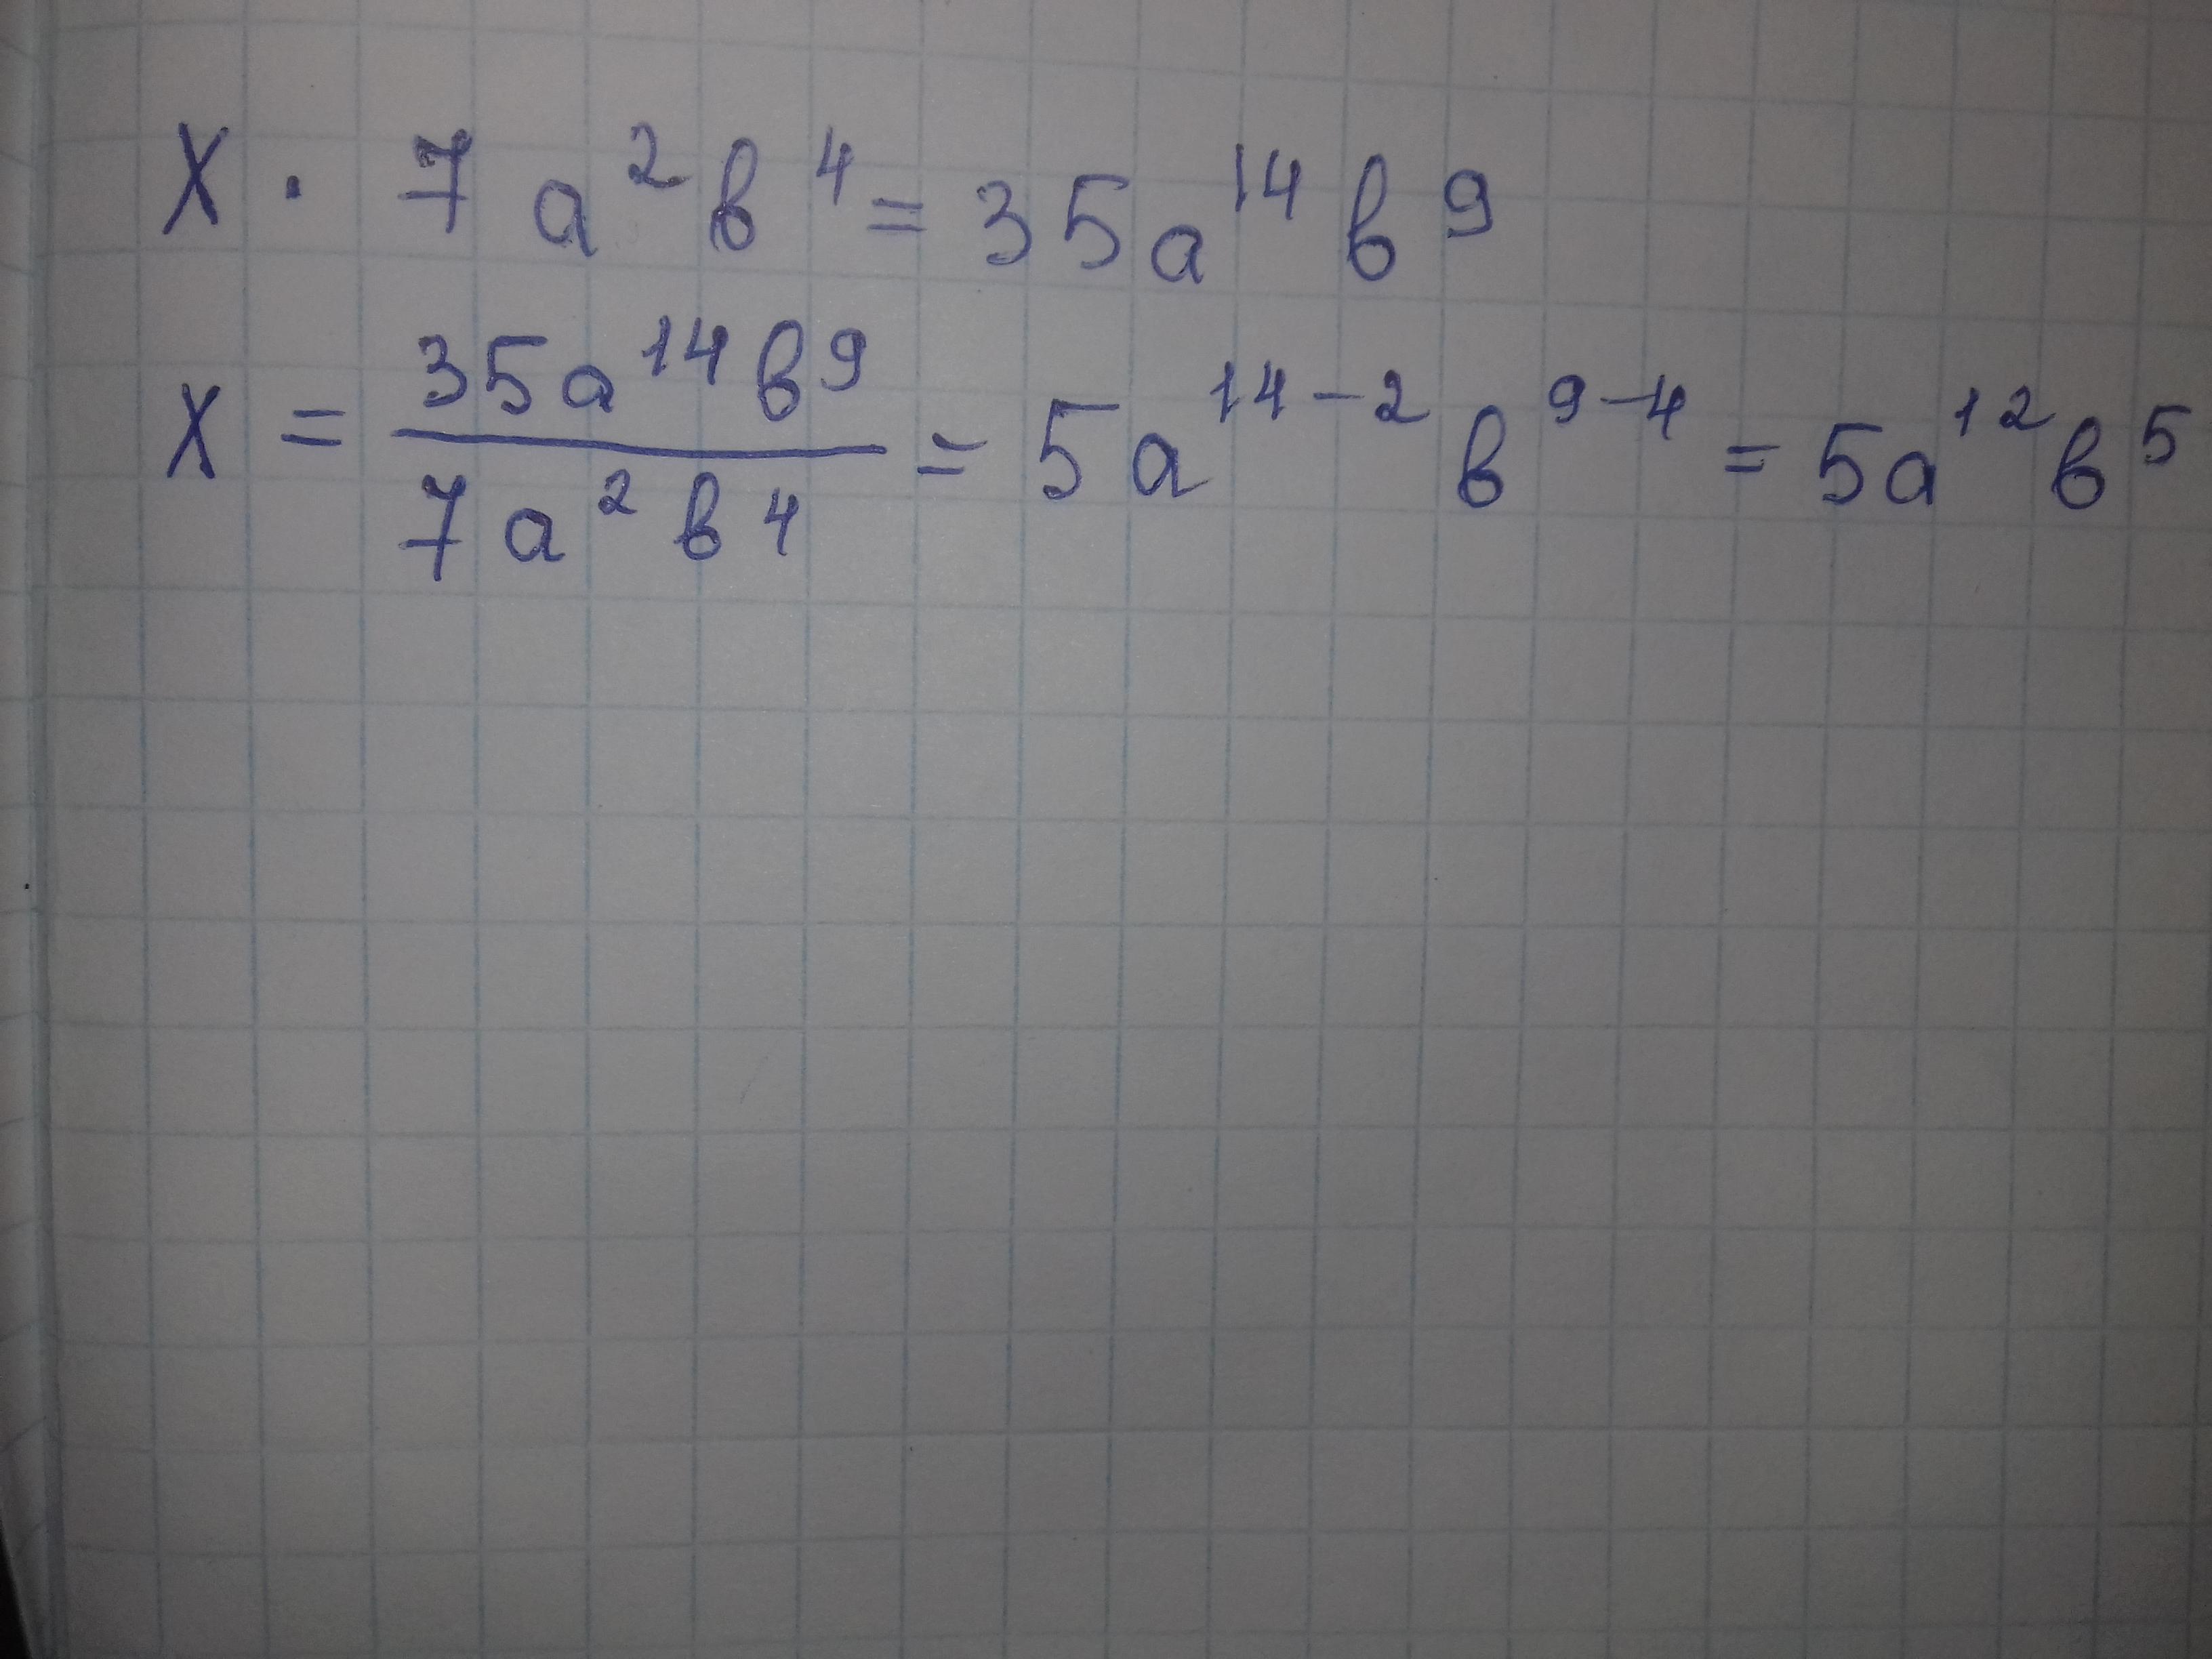 X · 7a²в⁴ = 35a¹⁴в⁹
X = 35a¹⁴в⁹ / 7a²в⁴ = 5a¹⁴⁻²в⁹⁻⁴ = 5a¹²в⁵